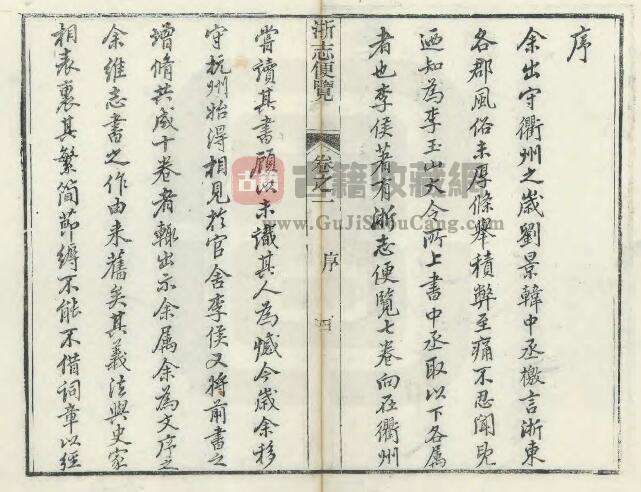 序
余出守衢州之歲劉景韓中丞檄言浙東
各郡風俗未厚條舉積弊至痛不忍聞見
迺知為李玉山大令所上書中丞取以下各屬
者也李侯著有浙志便覽七卷向在衢州
浙志便覽
卷之一
序
四
嘗讀其書顧以未識其人為憾今歲余移
守杭州始得相見於官舍李侯又將前書之
增脩共成十卷者輙出示余属余為文序之
余維志書之作由来舊矣其義法與史家
相表裏其繁簡節縟不能不借詞章以經
古籍
古籍收藏網
www.GuJiShouCang.com